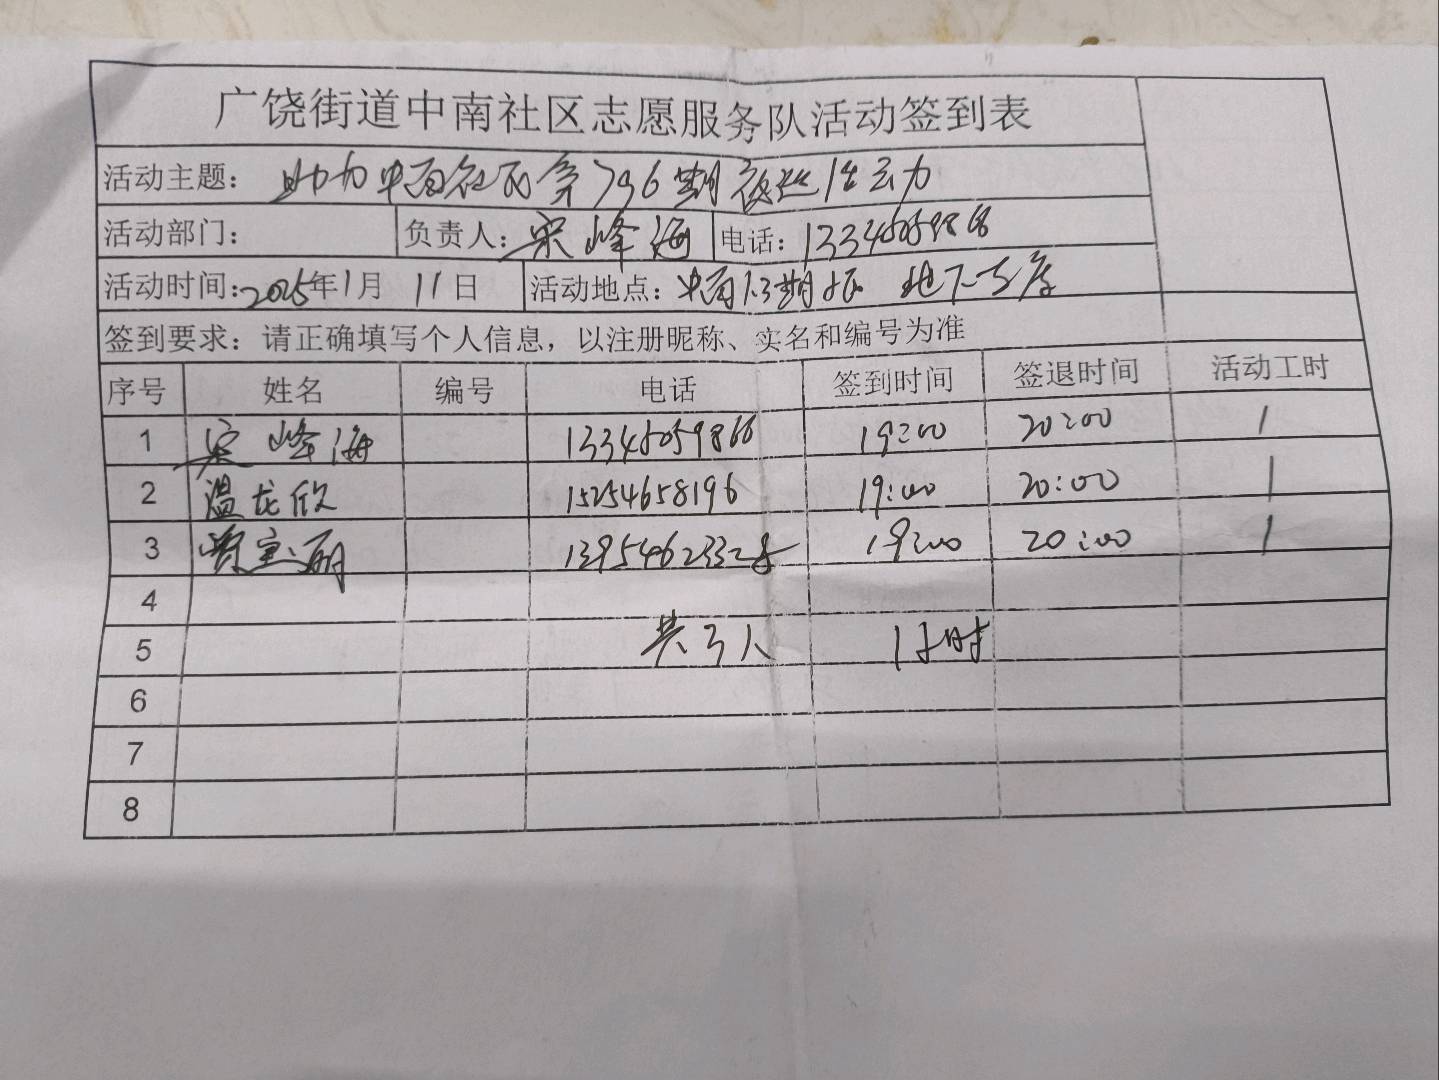 广饶街道中南社区志愿服务队活动签到表
活动主题： 助力中南社区第796期夜巡活动
活动部门： 负责人：宋峰海 电话：13345059866
活动时间：2025年1月11日 活动地点：中南1.3期 地下车库
签到要求：请正确填写个人信息，以注册昵称、实名和编号为准
序号 姓名 编号 电话 签到时间 签退时间 活动工时
1 宋峰海 13345059866 19:00 20:00 1
2 温龙欣 15254658196 19:00 20:00 1
3 贾宝丽 19:00 20:00 1
4
5 共3人 1小时
6
7
8